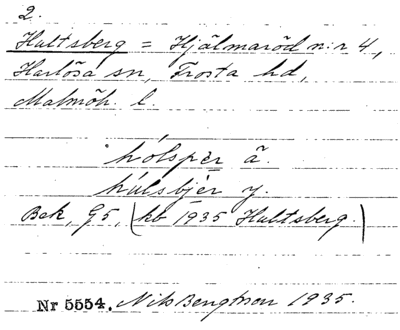 2.
Hultsberg = Hjälmaröd n:r 4,
Harlösa sn, Frosta hd,
Malmöh. l.
hólspèr ä.
húlsbjèr y.
Bek, G5, (kb 1935 Hultsberg.)
Nr 5554. Nils Bengtson 1935.